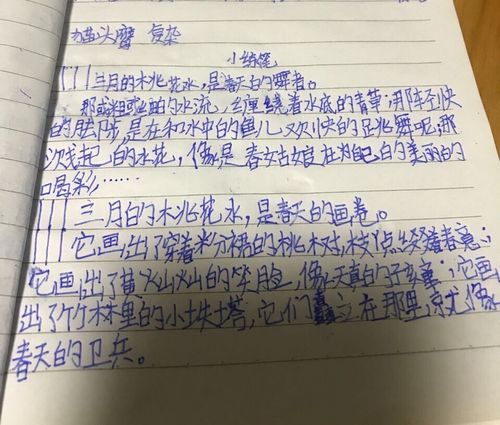 猫头鹰 复杂
小练笔
三月的桃花水,是春天的舞者。
那或粗或细的水流,缠绕着水底的青草;那轻快
的脚步,是在和水中的鱼儿欢快的跳舞呢;那
溅起的水花,像是春姑娘在为自己的美丽的
喝彩……
三月的桃花水,是春天的画卷。
它画出了穿着粉裙的桃树,枝点缀着春意;
它画出了黄灿灿的笑脸,像天真的孩童;它画
出了竹林里的小土塔,它们矗立在那里,就像
春天的卫兵。